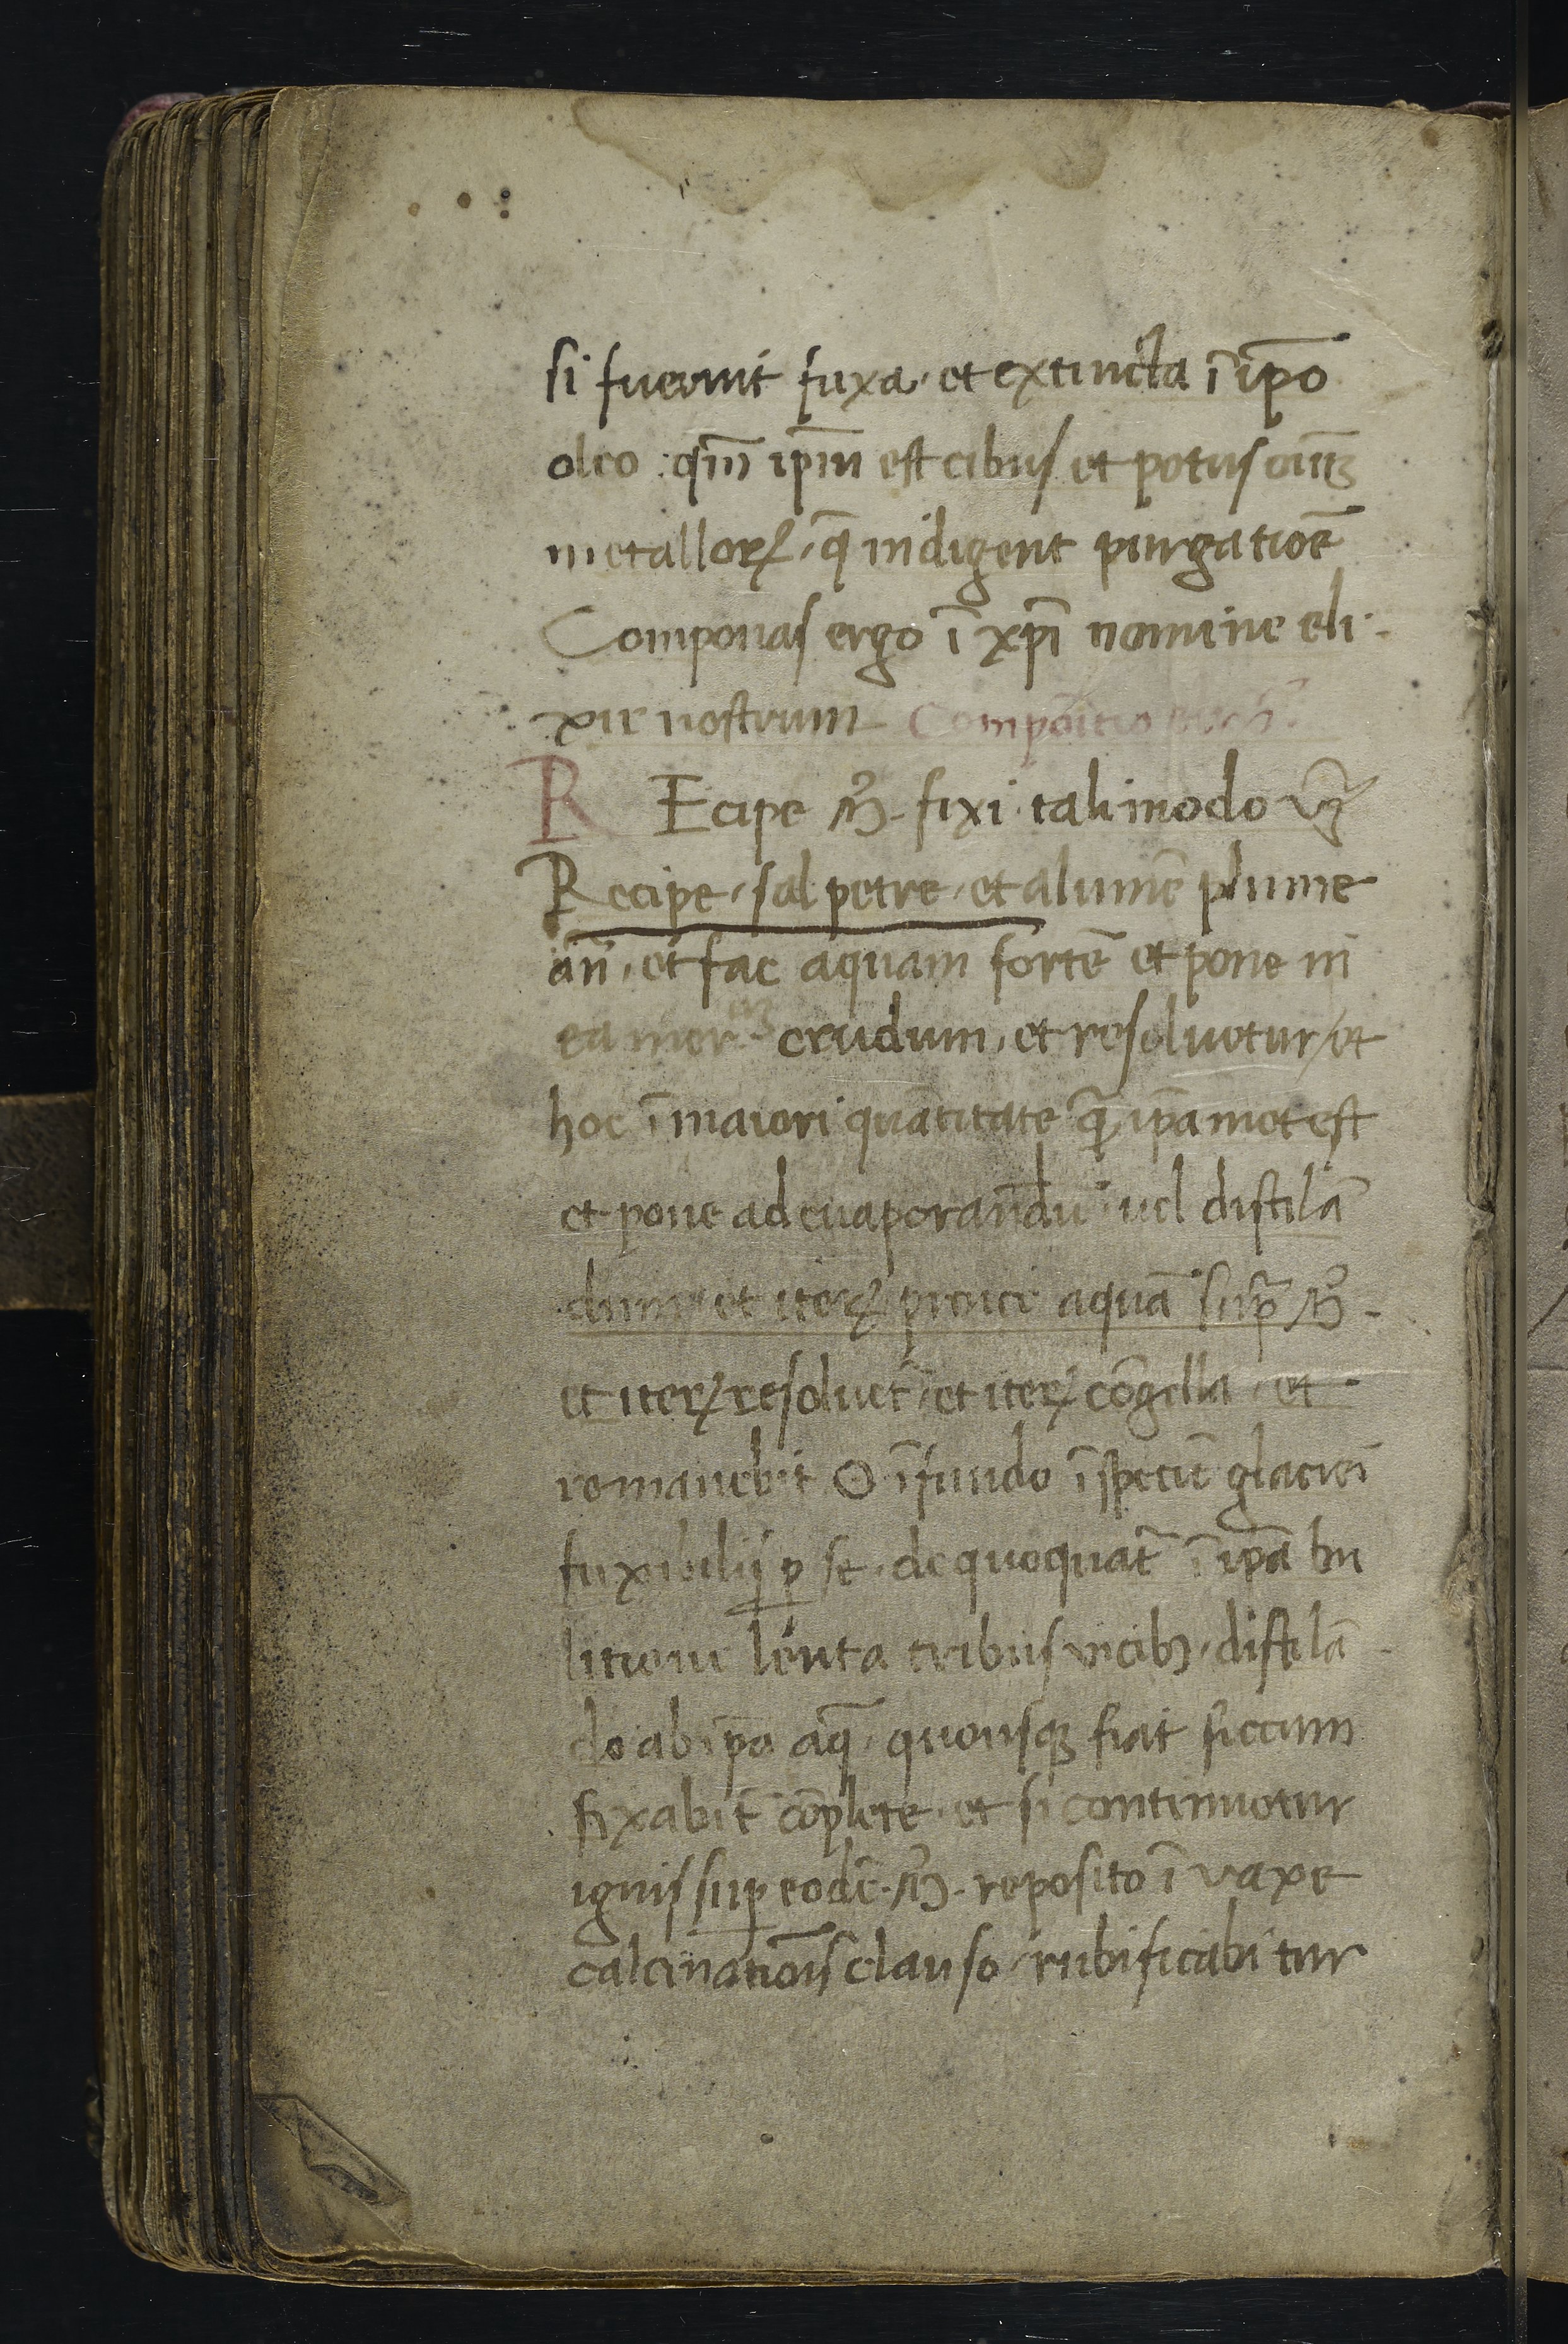 si fuerint fuxa · et extincta ī ip̄o
oleo : qm̄ ip̄m est cibus et potus oīuꝫ
metalloꝝ · q̄ indigent purgatiōe
Componas ergo ī xp̄i nomine eli·
xir nostrum Compōitio
R Ecipe ·fixi· tali modo vꝫ
Recipe · sal petre · et alumē plume
an̄ · et fac aquam fortē et pone in
ea mer crudum · et resoluetur / et
hoc ī maiori quātitate q̄ ip̄a met est
et pone ad euaporandū · uel distilā
dum · et iteꝝ proice aquā supꝰ
et iteꝝ resoluet̄ · et iteꝝ cōgella · et
remanebit ʘ ī fundo ī spetiē glaciei
fuxibilis ꝑ se · de quo quat̄ ī ip̄a bu
litione lenta tribus uicibꝫ · distilā
do ab ip̄a aq̄ · quousqꝫ fiat siccum
fixabit̄ cōplete · et si continuetur
ignis suꝑ eodē · reposito ī vaxe
calcinatiōis clauso · rubificabitur